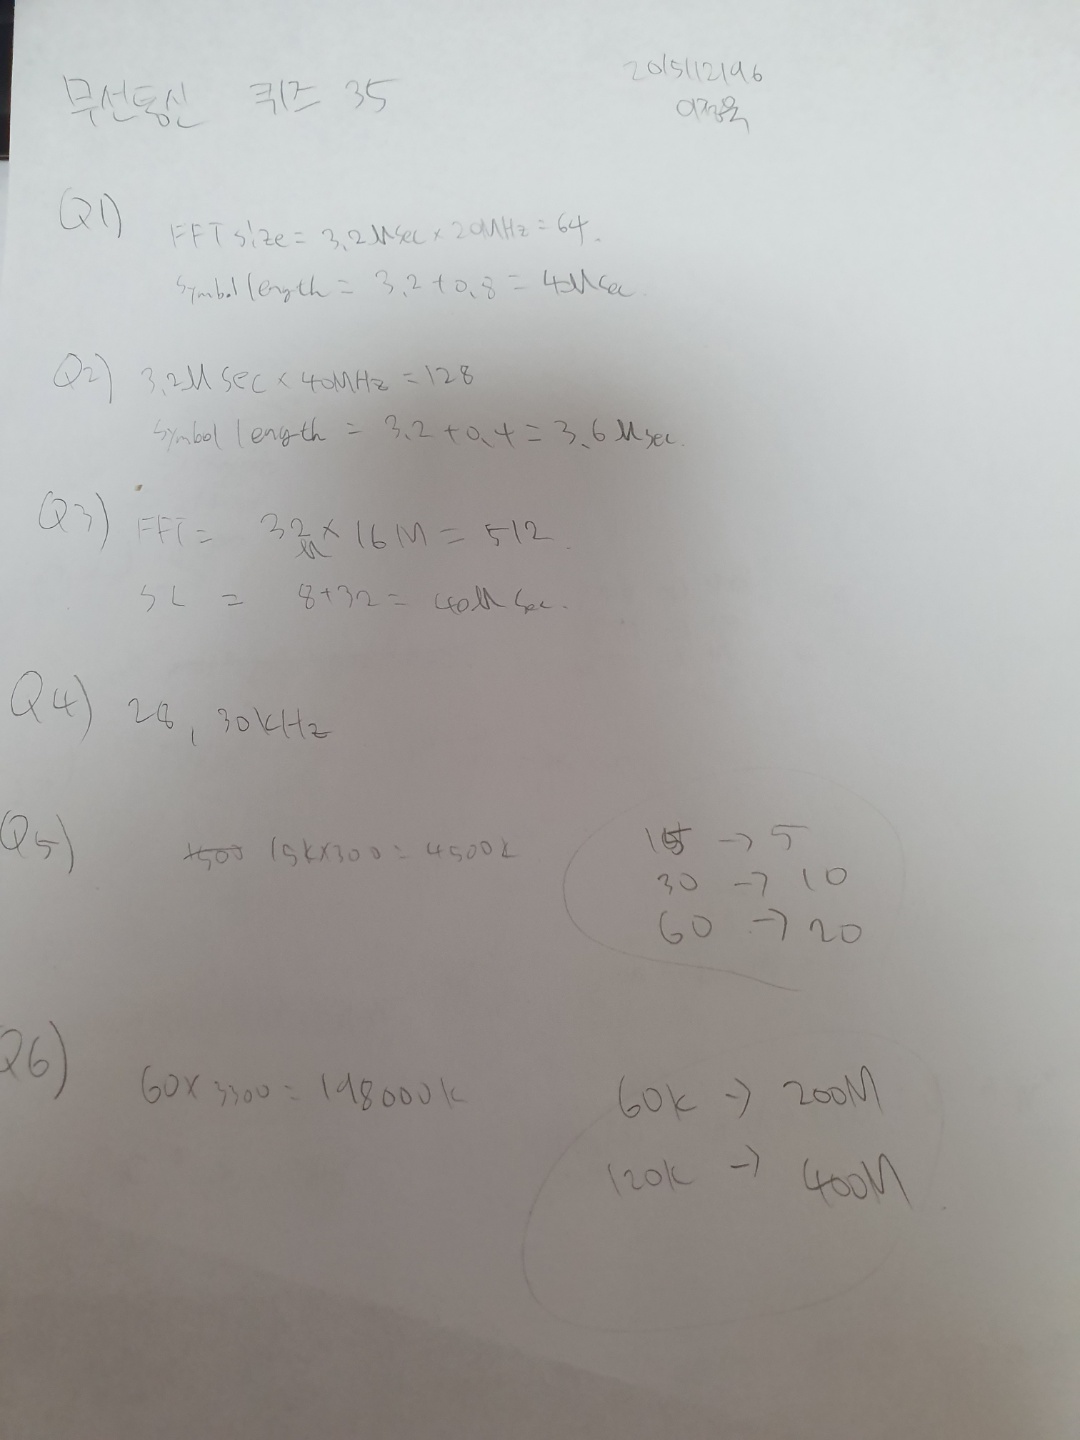 무선통신 퀴즈 35
201512196
이정욱
Q1)
FFT size = 3.2μsec × 20MHz = 64.
Symbol length = 3.2 + 0.8 = 4μsec.
Q2) 3.2μsec × 40MHz = 128
Symbol length = 3.2 + 0.4 = 3.6μsec.
Q3) FFT = 32μ × 16M = 512.
SL = 8+32 = 40μsec.
Q4) 28, 30kHz
Q5) 15k×300 = 4500k
15 → 5
30 → 10
60 → 20
Q6) 60×3300 = 198000k
60k → 200M
120k → 400M